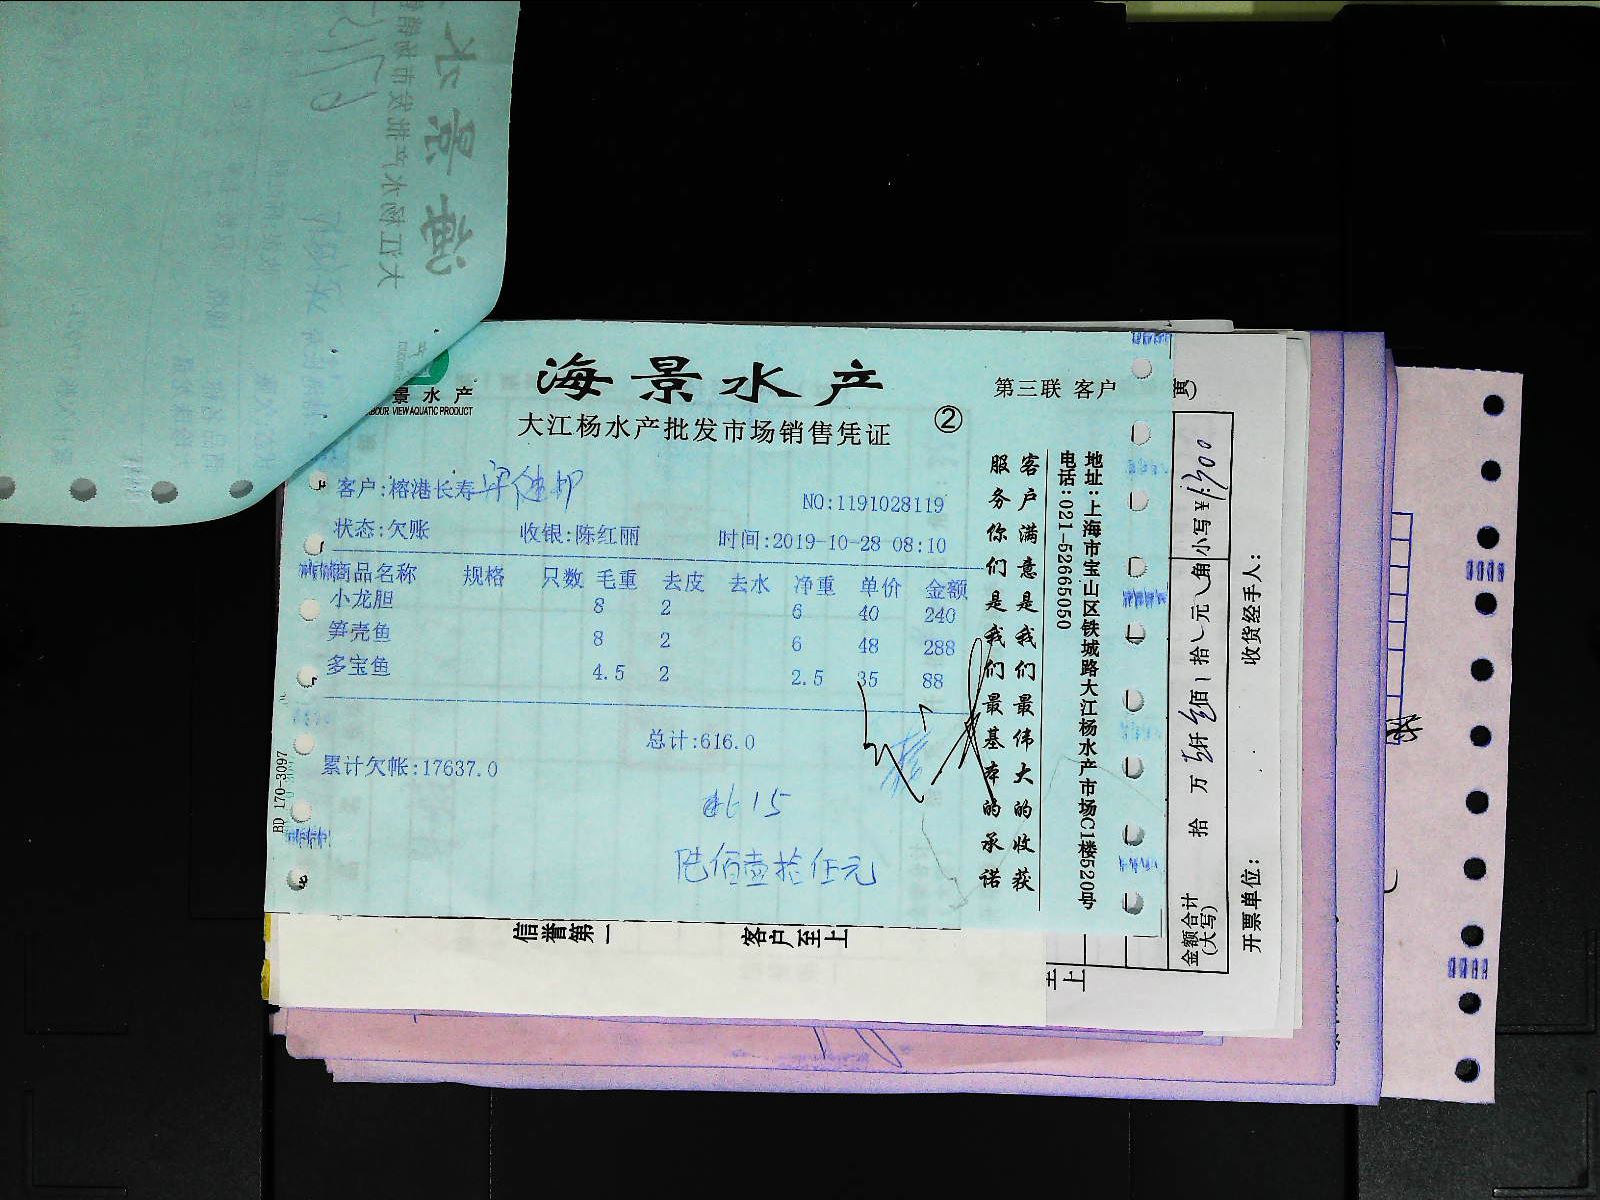 海景水产
大江杨水产批发市场销售凭证
②
第三联 客户
景水产
BOUR VIEW AQUATIC PRODUCT
客户:榕港长寿
NO:1191028119
状态:欠账 收银:陈红丽 时间:2019-10-28 08:10
商品名称 规格 只数 毛重 去皮 去水 净重 单价 金额
小龙胆 8 2 6 40 240
笋壳鱼 8 2 6 48 288
多宝鱼 4.5 2 2.5 35 88
总计:616.0
累计欠帐:17637.0
615
陆佰壹拾伍元
客户满意是我们最伟大的收获
服务你们是我们最基本的承诺
地址:上海市宝山区铁城路大江杨水产市场C1楼520号
电话:021-52665050
BD 170-3097
信誉第一 客户至上
至上
金额合计
(大写)
拾 万 仟 佰 拾 元 角 小写¥
开票单位: 收货经手人:
海景水
大江杨水产批发市场销售